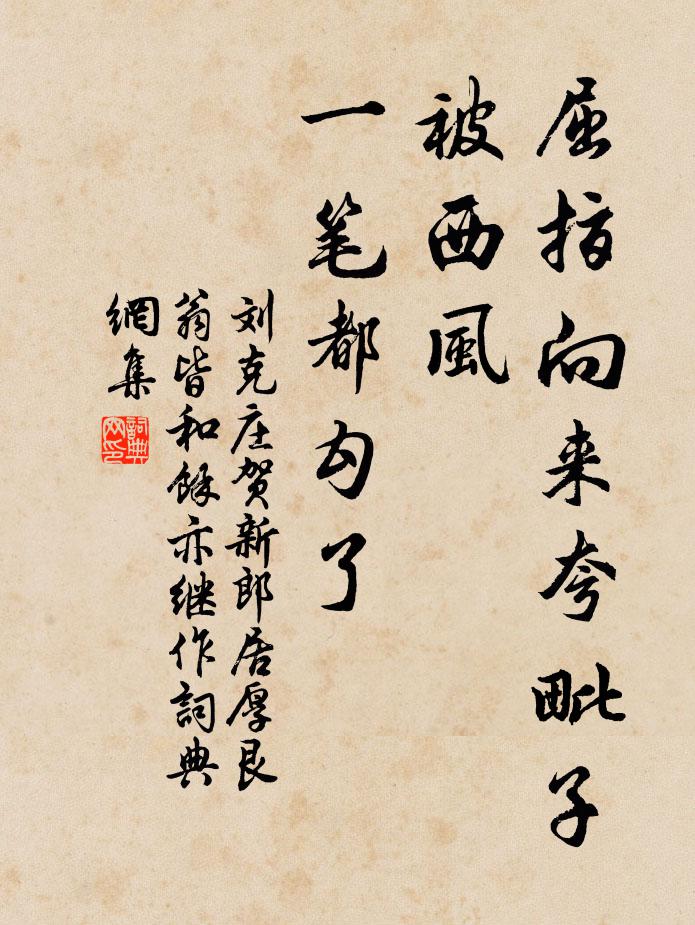 屈指向来夸毗子
被西風
一笔都勾了
刘克庄贺新郎居厚艮
翁皆和餘亦继作詞典
網集
詞典网印